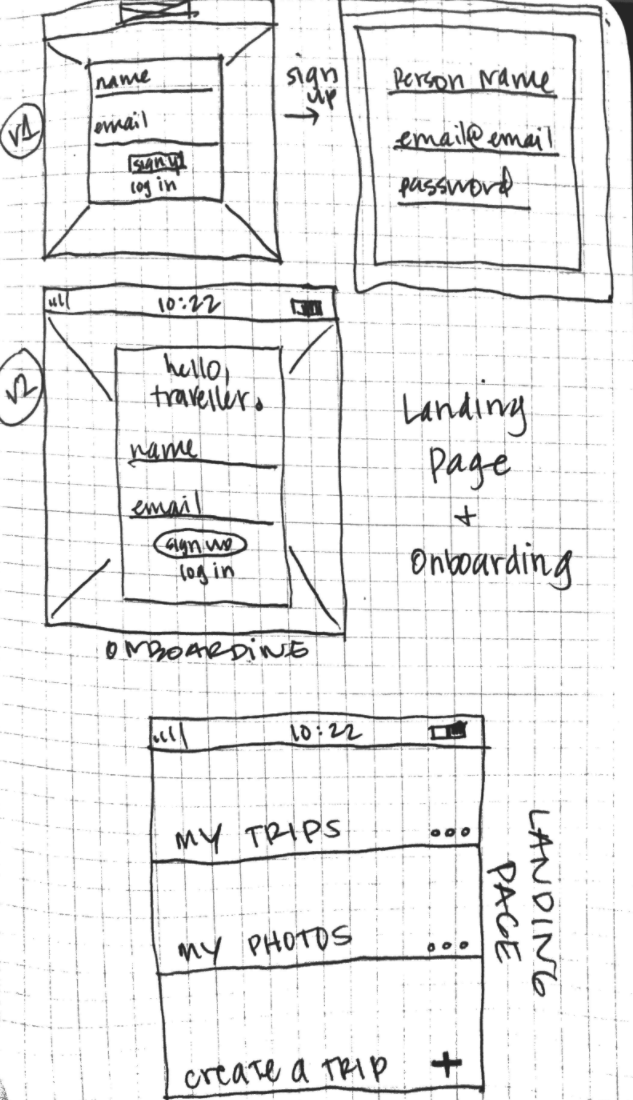 v1
name
email
sign up
log in
sign
up
Person Name
email@email
password
v2
10:22
hello,
traveller.
name
email
sign up
log in
ONBOARDING
Landing
Page
+
Onboarding
10:22
MY TRIPS
MY PHOTOS
create a TRIP +
LANDING
PAGE